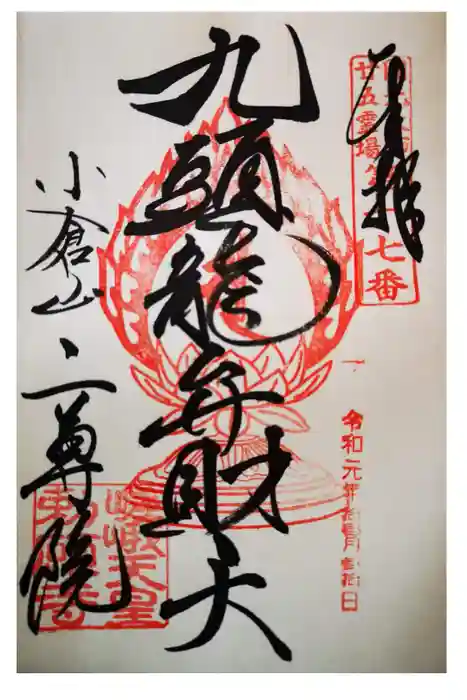 奉拝
廿五霊場
七番
九頭龍弁財天
小倉山 二尊院
令和元年
日
嵯峨天皇